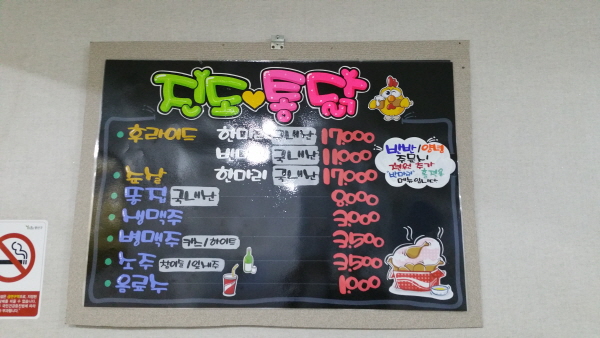 진도♥통닭
후라이드 한마리 국내산 17,000
반마리 국내산 11,000
눈날 한마리 국내산 17,000
똥집 국내산 8,000
생맥주 3,000
병맥주 카스/하이트 3,500
소주 참이슬/잎새주 3,500
음료수 1,000
반반/양념
주문시
천원 추가